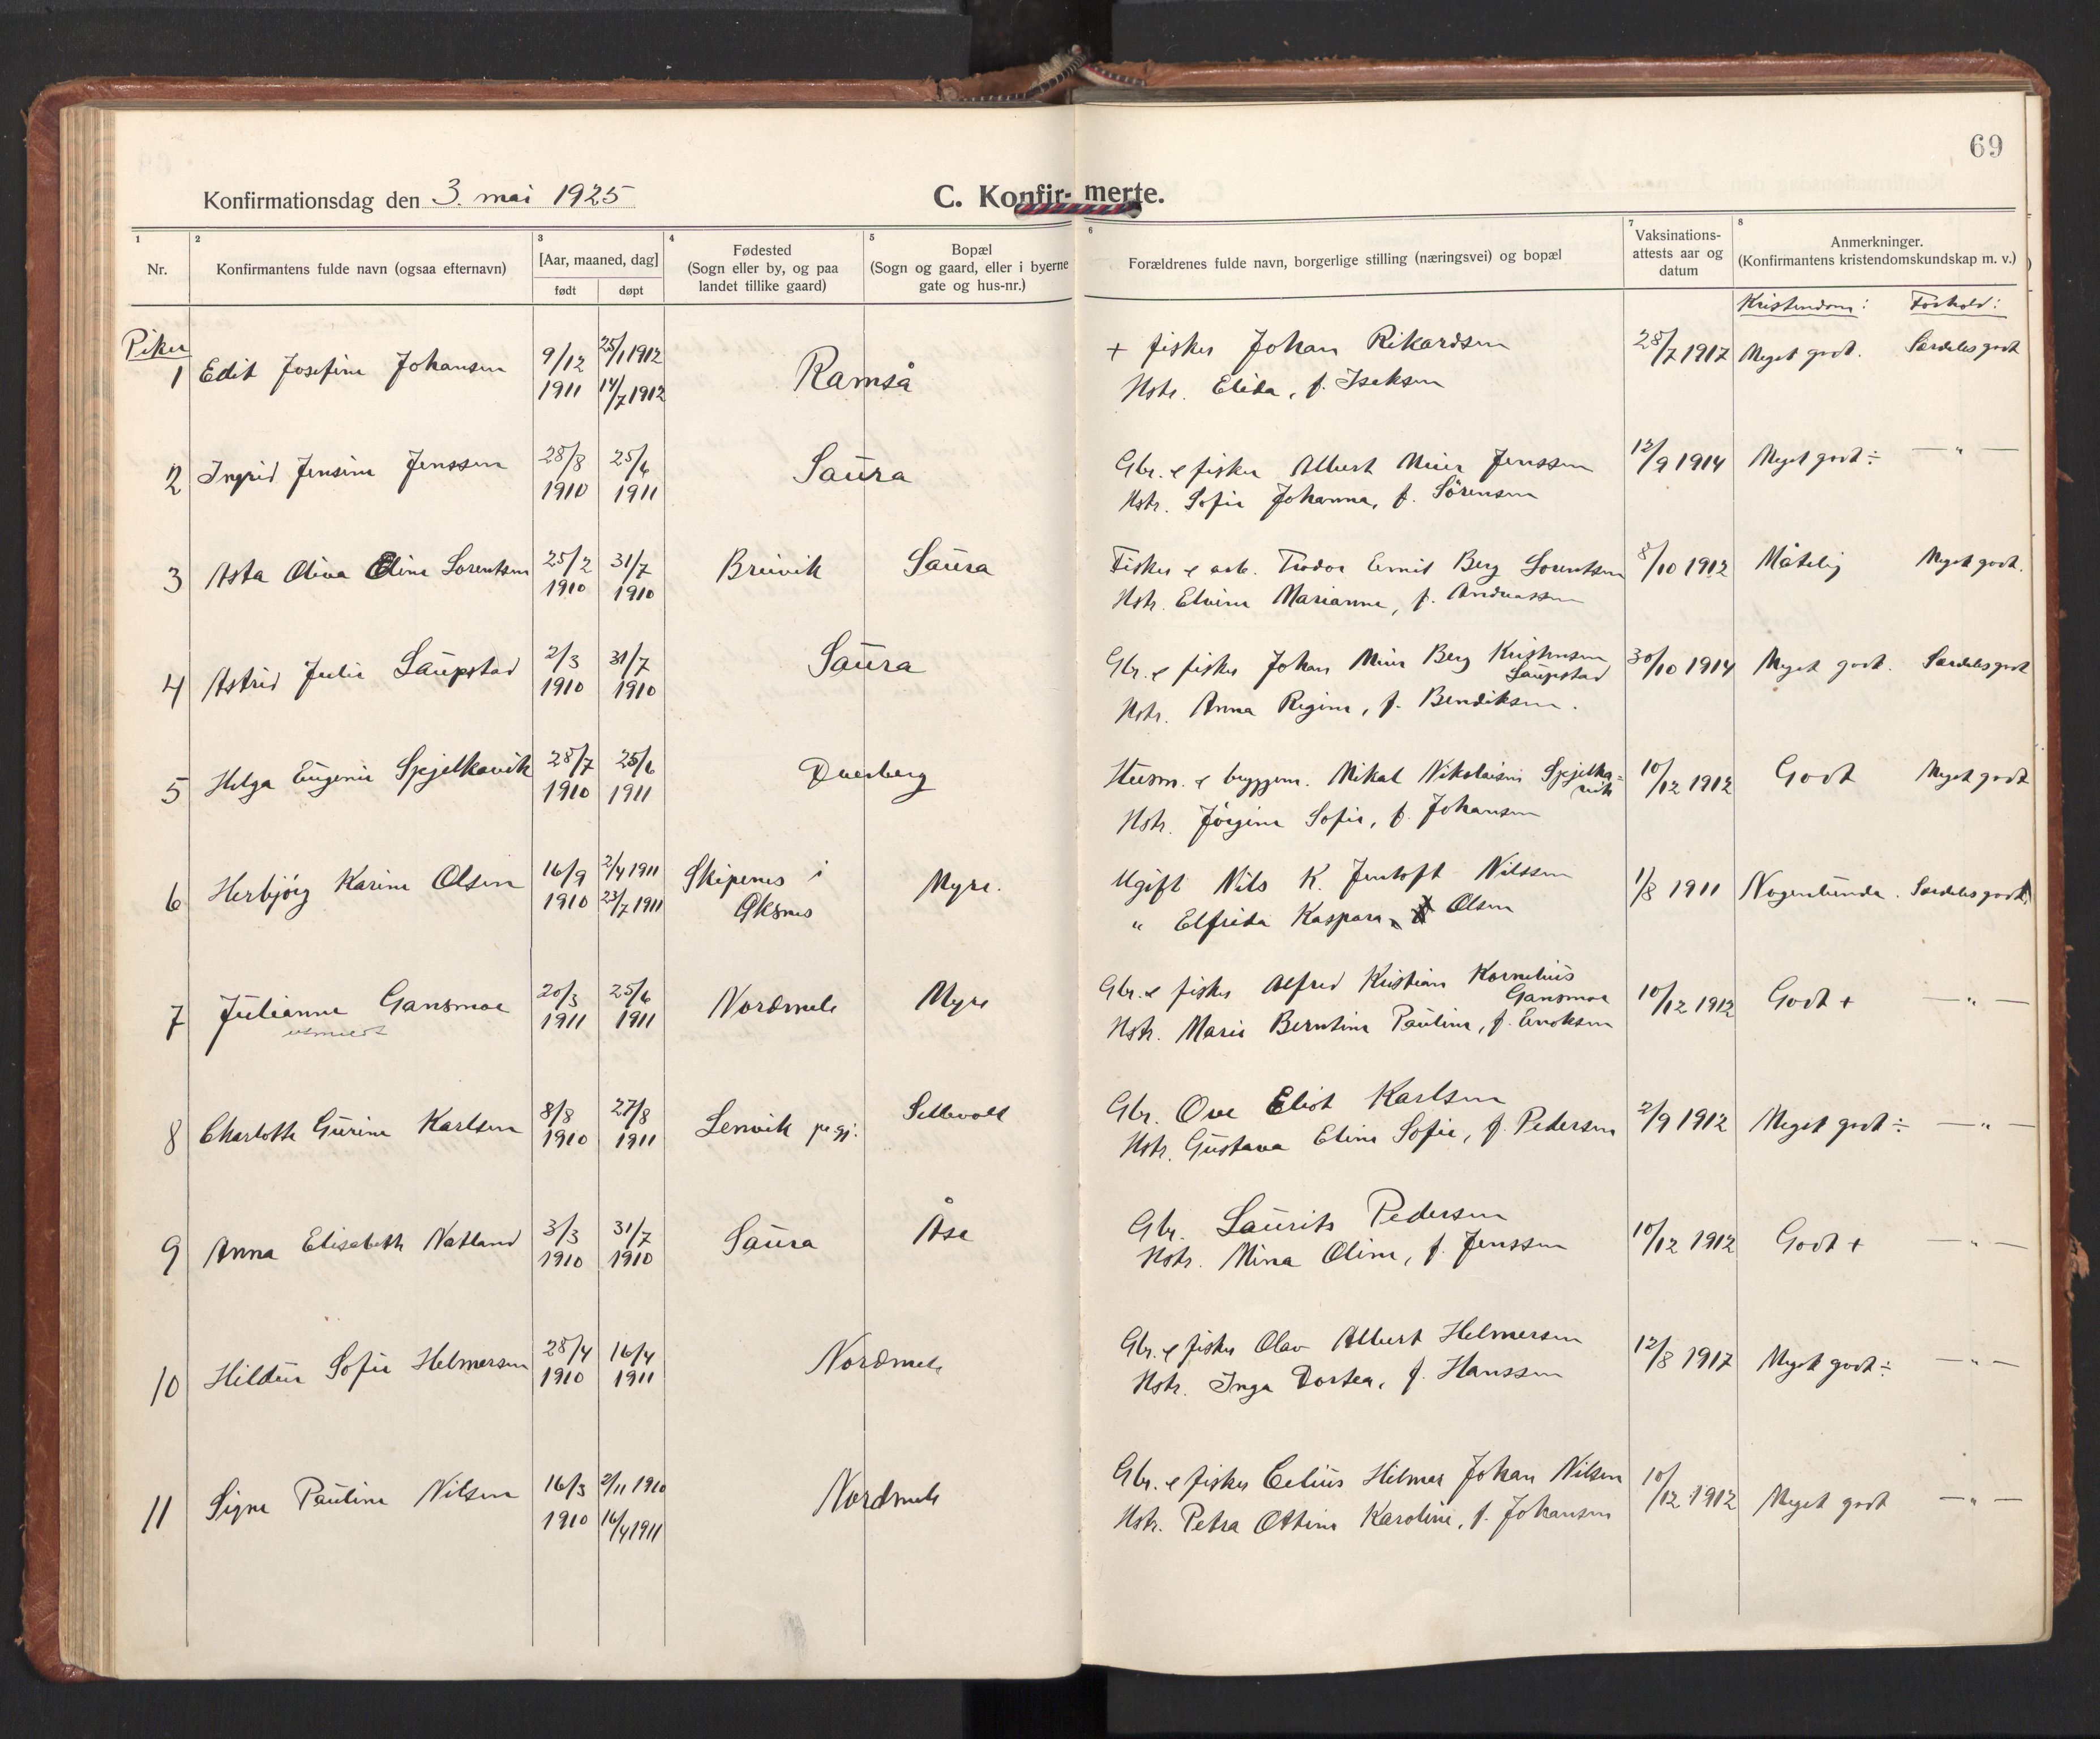 69
Konfirmationsdag den 3. mai 1925
C. Konfir- merte.
1 2 3 4 5 6 7 8
Nr.
Konfirmantens fulde navn (ogsaa efternavn)
[Aar, maaned, dag]
født døpt
Fødested
(Sogn eller by, og paa
landet tillike gaard)
Bopæl
(Sogn og gaard, eller i byerne
gate og hus-nr.)
Forældrenes fulde navn, borgerlige stilling (næringsvei) og bopæl
Vaksinations-
attests aar og
datum
Anmerkninger.
(Konfirmantens kristendomskundskap m. v.)
Kristendom: Forhold:
Piker
1 Edit Josefine Johansen 9/12 25/1 1912 Ramså + fisker Johan Rikardsen 28/7 1917 Meget godt. Særdeles godt
1911 14/7 1912 Hstr. Elida, f. Isaksen
2 Ingrid Jensine Jenssen 28/8 25/6 Saura Gbr. & fisker Albert Meier Jenssen 12/9 1914 Meget godt ÷ — " —
1910 1911 Hstr. Sofie Johanna, f. Sörensen
3 Asta Oliva Eline Sorentsen 25/2 31/7 Breivik Saura Fisker & arb. Teodor Ernit Berg Sorentsen 8/10 1912 Måtelig Meget godt.
1910 1910 Hstr. Elvine Marianne, f. Andreassen
4 Astrid Julie Saupstad 2/3 31/7 Saura Gbr. & fisker Johan Meier Berg Kristensen 30/10 1914 Meget godt. Særdeles godt
Saupstad
1910 1910 Hstr. Anna Regine, f. Bendiksen.
5 Helga Eugenie Spjelkavik 28/7 25/6 Dverberg Husm. & byggm. Mikal Nikolaisen Spjelka= 10/12 1912 Godt Meget godt
vik
1910 1911 Hstr. Jörgine Sofie, f. Johansen
6 Herbjörg Karine Olsen 16/9 2/4 1911 Skipenes i Myre. Ugift Nils K. Jentoft Nilssen 1/8 1911 Nogenlunde. Særdeles godt.
1910 23/7 1911 Øksnes " Elfrida Kaspara Olsen
7 Julianne Gansmoe 20/3 25/6 Nordmele Myre Gbr. & fisker Alfred Kristian Kornelius 10/12 1912 Godt + — " —
Gansmoe
utmeldt 1911 1911 Hstr. Marie Berntine Pauline, f. Enoksen
8 Charlotte Gurine Karlsen 8/8 27/8 Lenvik pr.gj. Sellevoll Gbr. Ove Eliot Karlsen 2/9 1912 Meget godt ÷ — " —
1910 1911 Hstr. Gustava Eline Sofie, f. Pedersen
9 Anna Elisabeth Natland 3/3 31/7 Saura Åse Gbr. Laurits Pedersen 10/12 1912 Godt + — " —
1910 1910 Hstr. Mina Oline, f. Jenssen
10 Hildur Sofie Helmersen 28/4 16/4 Nordmele Gbr. & fisker Olav Albert Helmersen 12/8 1917 Meget godt ÷ — " —
1910 1911 Hstr. Inga Dortea, f. Hanssen
11 Signe Pauline Nilsen 16/3 2/11 1910 Nordmele Gbr. & fisker Celius Hilmar Johan Nilsen 10/12 1912 Meget godt — " —
1910 16/4 1911 Hstr. Petra Ottine Karoline, f. Johansen